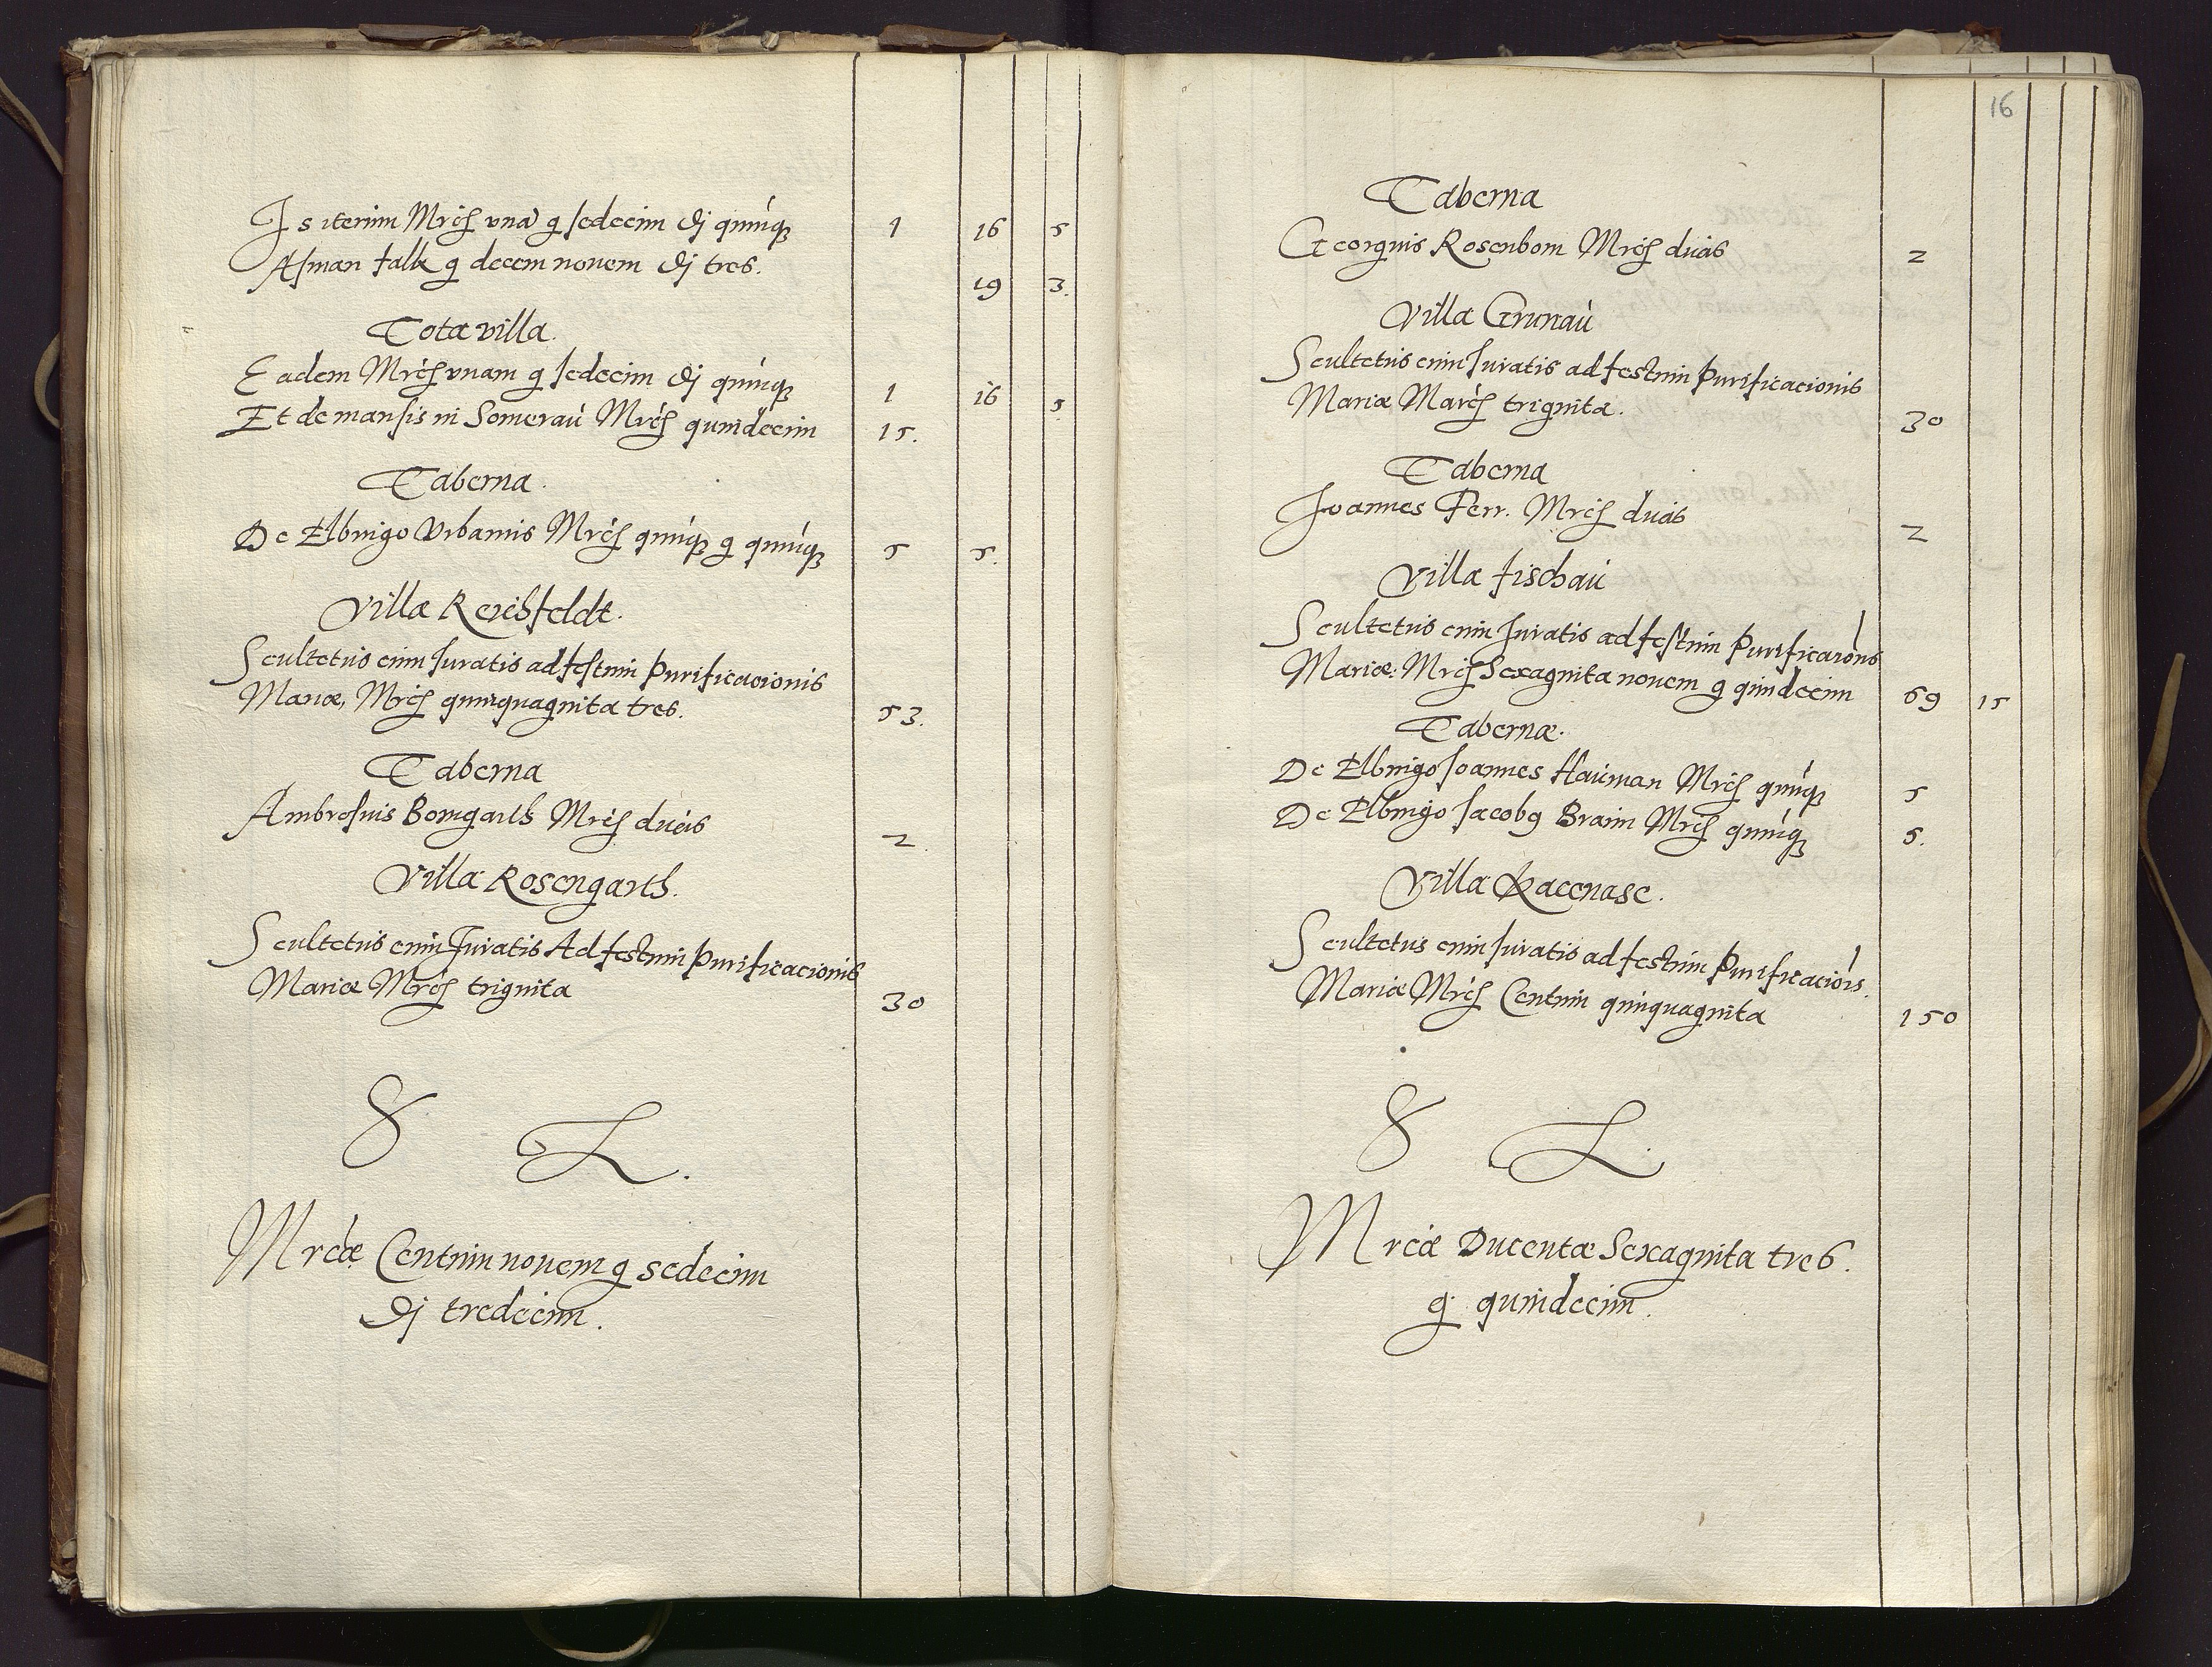 Is iterum Mrcs vna g sedecim dj quinq3 1 16 5
Asman falk g decem nouem dj tres. 19 3.
Tota villa.
Eadem Mrcs vnam g sedecim dj quinq3 1 16 5
Et de mansis in Someraù Mrcs quindecim 15.
Taberna.
De Elbingo Vrbanus Mrcs quinq3 g quinq3 5 5.
Villa Reichfeldt.
Scultetus cum Juratis ad festum Purificacionis
Mariæ, Mrcs quinquaginta tres. 53.
Taberna
Ambrosius Bomgarth Mrcs duas 2.
Villa Rosengarth.
Scultetus cum Juratis Ad festum Purificacionis
Mariæ Mrcs triginta 30
S L.
Mrcæ Centum nouem g sedecim
dj tredecim.
16
Taberna
Georgius Rosenbom Mrcs duas 2
Villa Grunaù
Scultetus cum Juratis ad festum Purificacionis
Mariæ Marcs triginta. 30
Taberna
Joannes Ferr. Mrcs duas 2
Villa fischaù
Scultetus cum Juratis ad festum Purificacions
Mariæ: Mrcs Sexaginta nouem g quindecim 69 15
Tabernæ.
De Elbingo Joannes Hauman Mrcs quinq3 5
De Elbingo Jacobg Braun Mrcs quinq3 5.
Villa Kacenase.
Scultetus cum Juratis ad festum Purificaciois.
Mariæ Mrcs Centum quinquaginta 150
S L.
Mrcæ Ducentæ Sexaginta tres.
g quindecim.